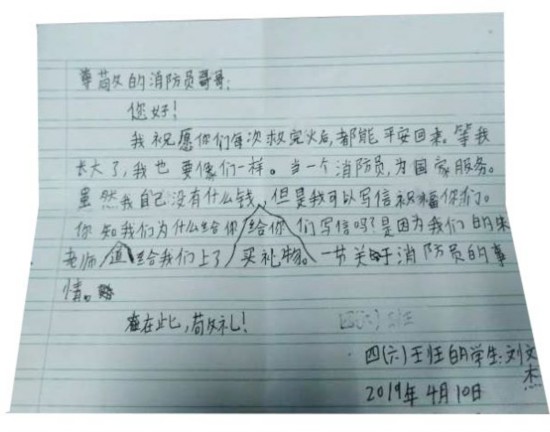 尊敬的消防员哥哥：
您好！
我祝愿你们每次救完火后，都能平安回来。等我
长大了，我也要像们一样。当一个消防员，为国家服务。
虽然我自己没有什么钱，但是我可以写信祝福你们。
你知我们为什么给你给你们写信吗？是因为我们的朱
老师道给我们上了买礼物。一节关于消防员的事
情。
在此，敬礼！
四(六)班
四(六)王班的学生：刘文杰
2019年4月10日